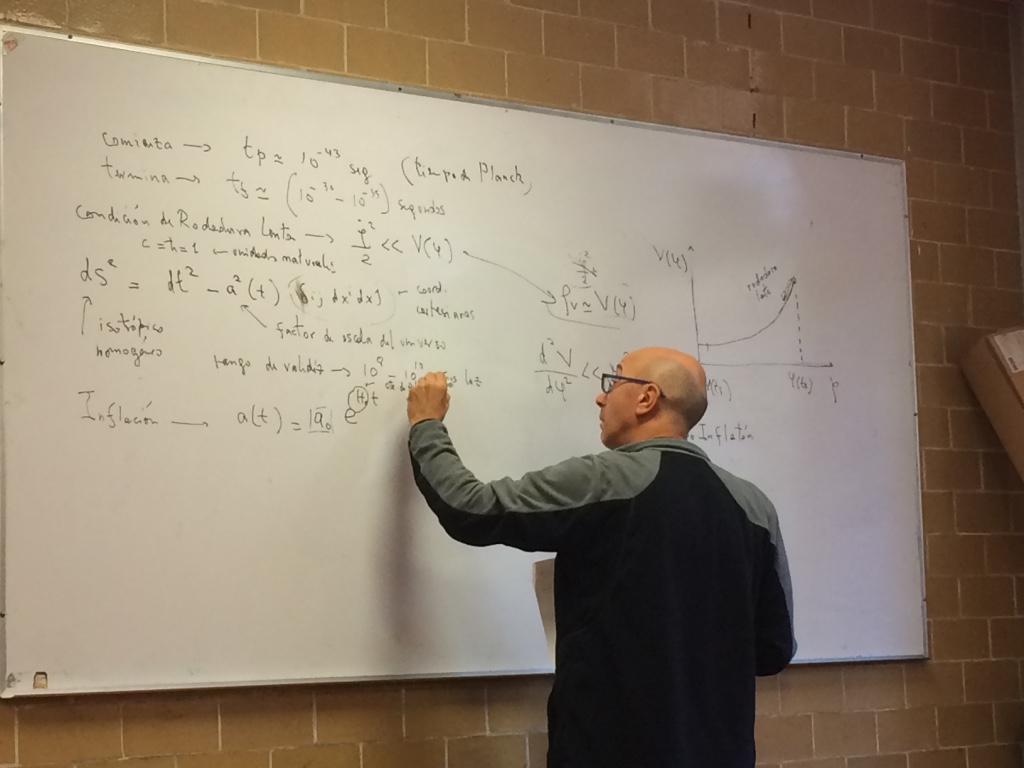 comienza → tp ≃ 10^-43 seg (tiempo de Planck)
termina → ts ≃ (10^-30 - 10^-35) segundos
Condición de Rodadura Lenta → φ̇²/2 << V(φ)
c = ħ = 1 ← unidades naturales
ds² = dt² - a²(t) dx^i dx^j - coord. cartesianas
isotrópico
homogéneo
factor de escala del universo
rango de validez → 10^9 - 10^12
luz
Inflación → a(t) = |a₀| e^Ht
ρv ≃ V(φ)
d²V/dφ² <<
V(φ)
rodadura
lenta
φ(t₂)
φ
Inflatón